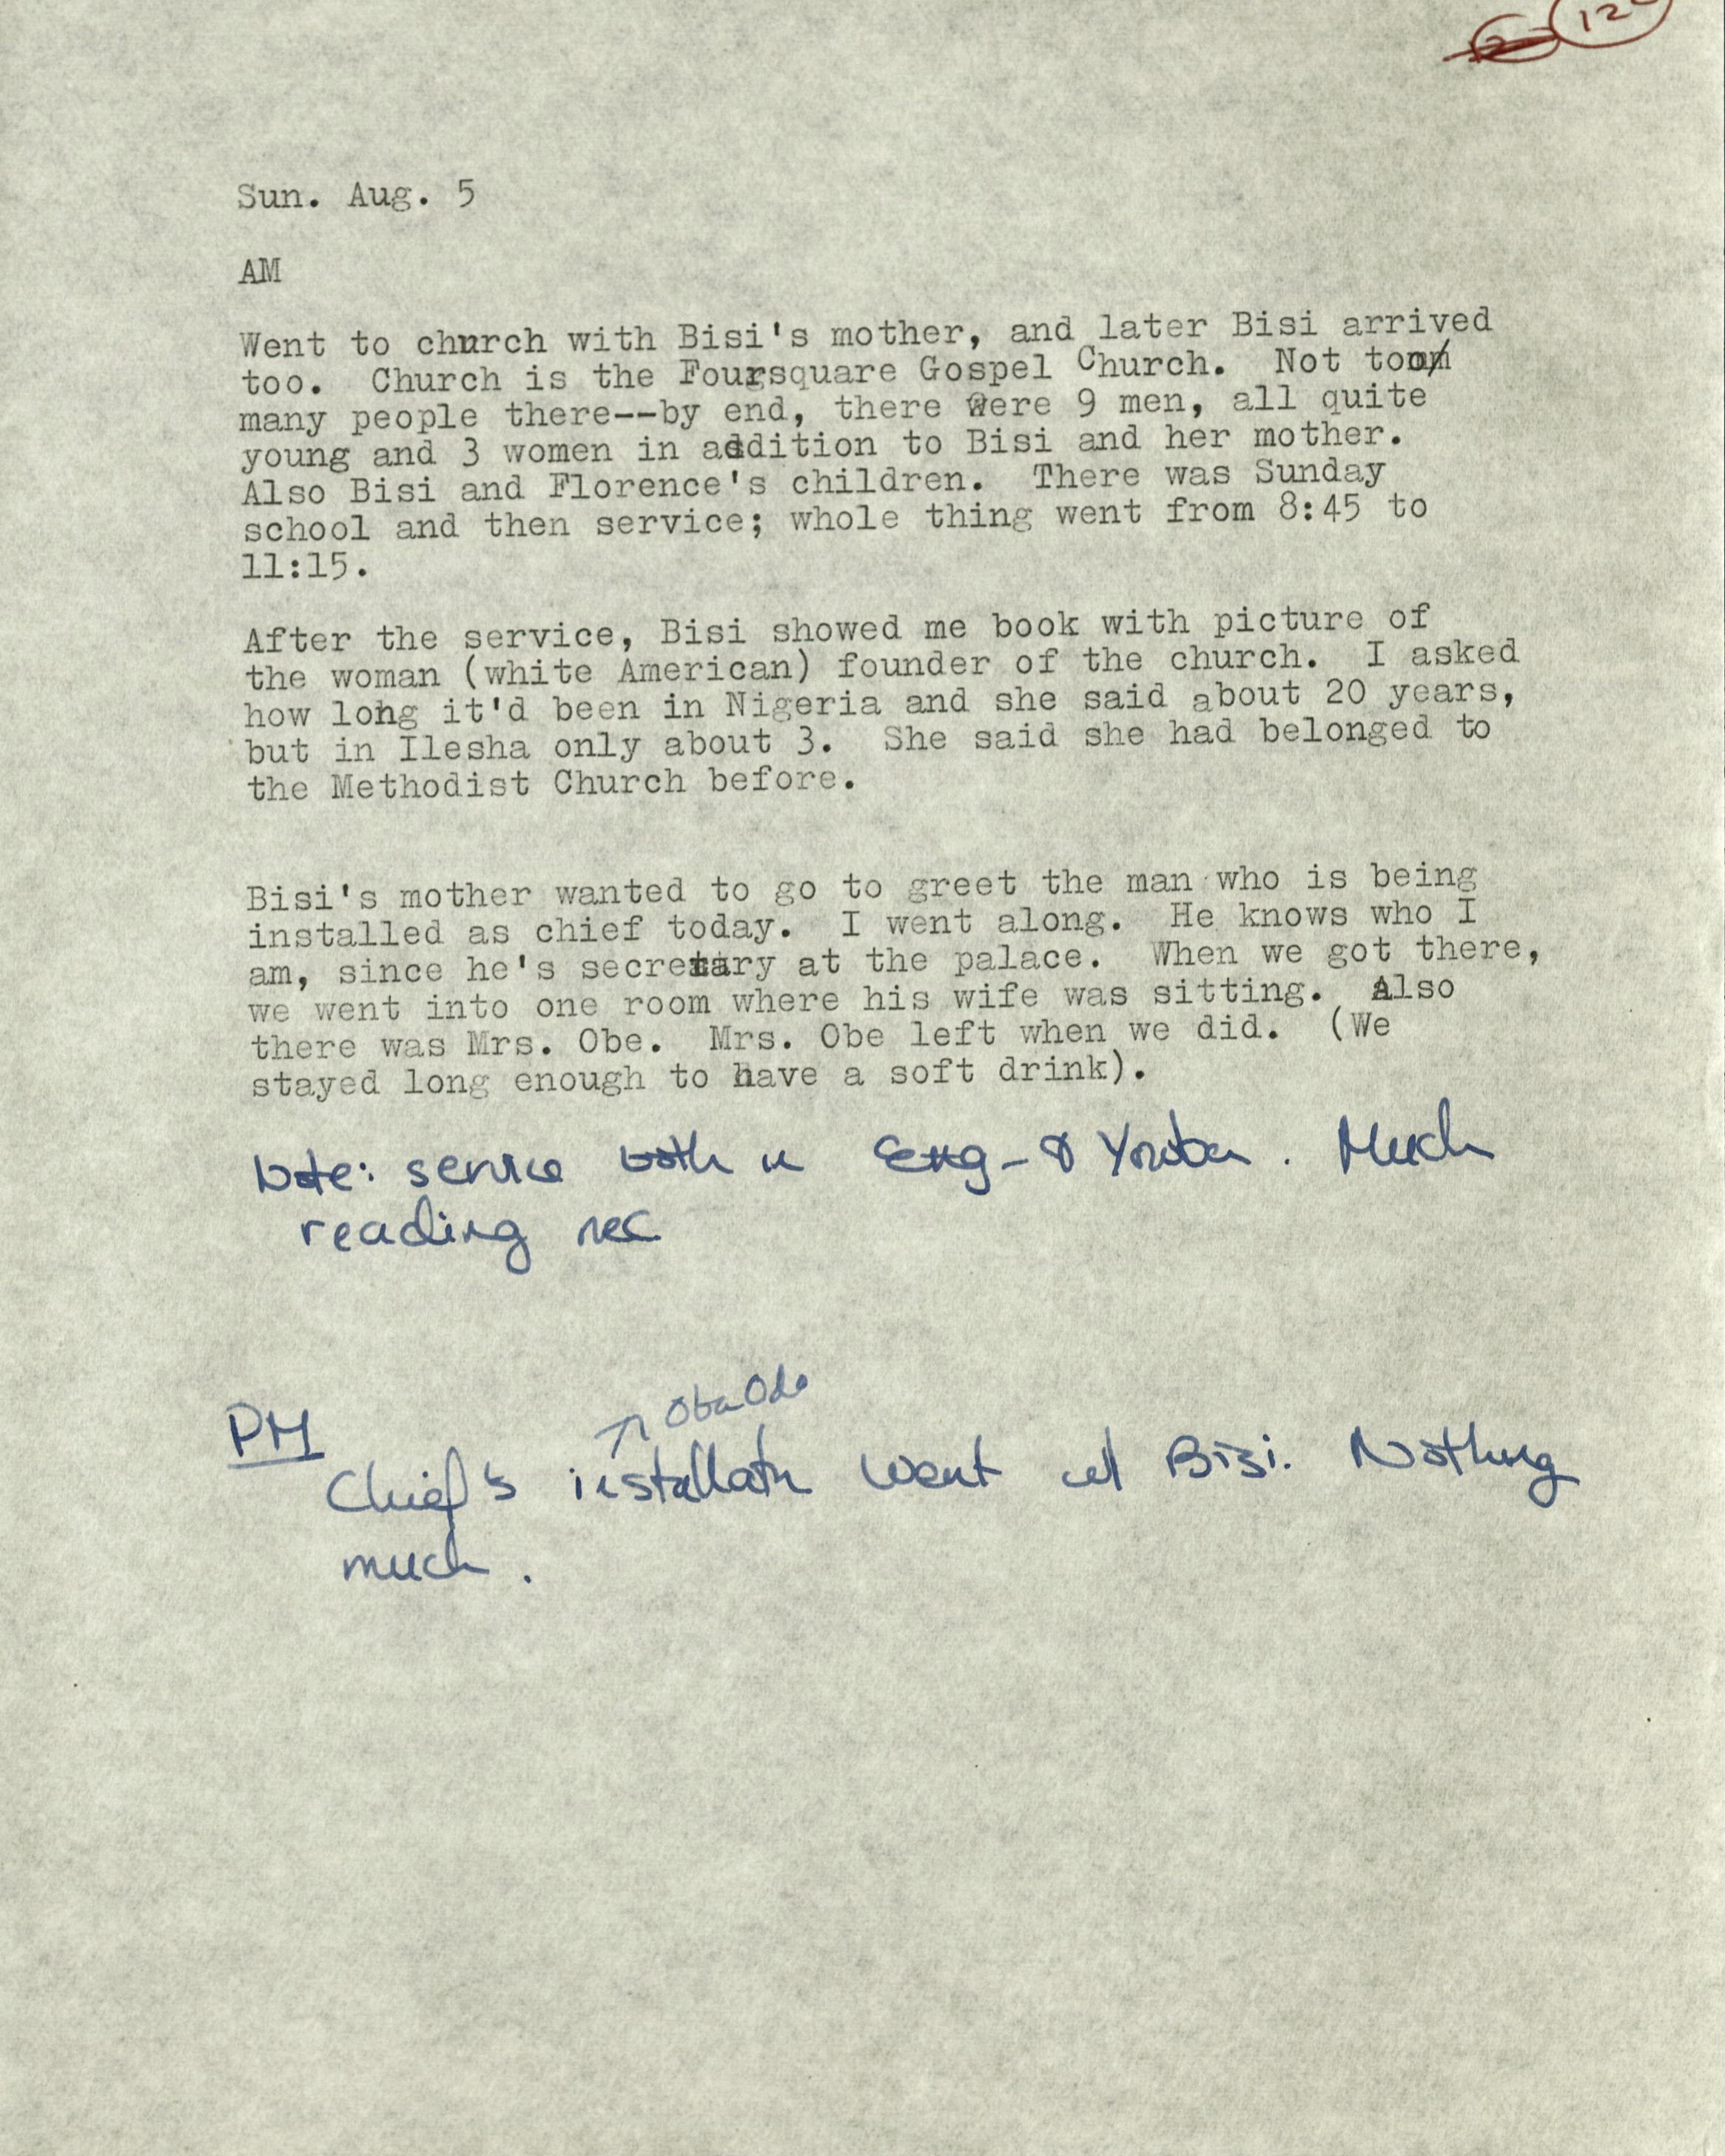 Sun. Aug. 5
AM
Went to church with Bisi's mother, and later Bisi arrived
too. Church is the Foursquare Gospel Church. Not too
many people there--by end, there were 9 men, all quite
young and 3 women in addition to Bisi and her mother.
Also Bisi and Florence's children. There was Sunday
school and then service; whole thing went from 8:45 to
11:15.
After the service, Bisi showed me book with picture of
the woman (white American) founder of the church. I asked
how long it'd been in Nigeria and she said about 20 years,
but in Ilesha only about 3. She said she had belonged to
the Methodist Church before.
Bisi's mother wanted to go to greet the man who is being
installed as chief today. I went along. He knows who I
am, since he's secretary at the palace. When we got there,
we went into one room where his wife was sitting. Also
there was Mrs. Obe. Mrs. Obe left when we did. (We
stayed long enough to have a soft drink).
Note: service both in Eng- & Yoruba. Much
reading nec
Oba Odo
PM
Chief's installatn Went w/ Bisi. Nothing
much.